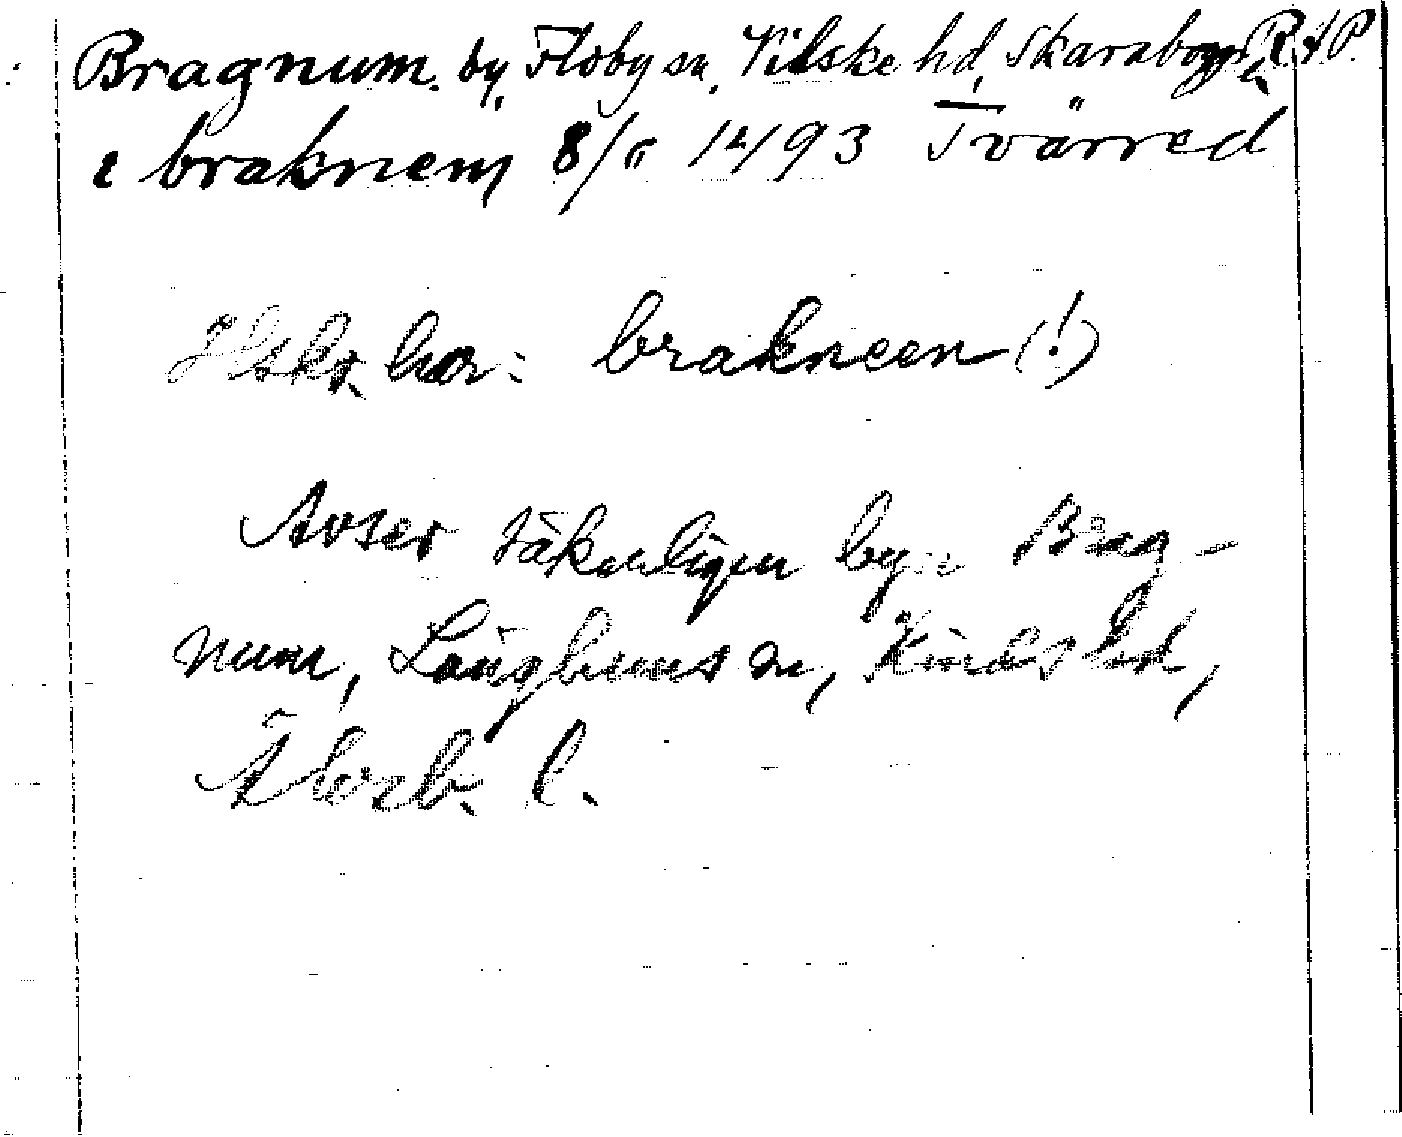 Bragnum. by, Floby sn, Vilske hd, Skaraborgs l. RAP.
i braknem 8/5 1493 Tvärred
Hskr. har: brakneen (!)
Avser säkerligen byn Brag-
num, Länghems sn, Kinds hd,
Älvsb. l.